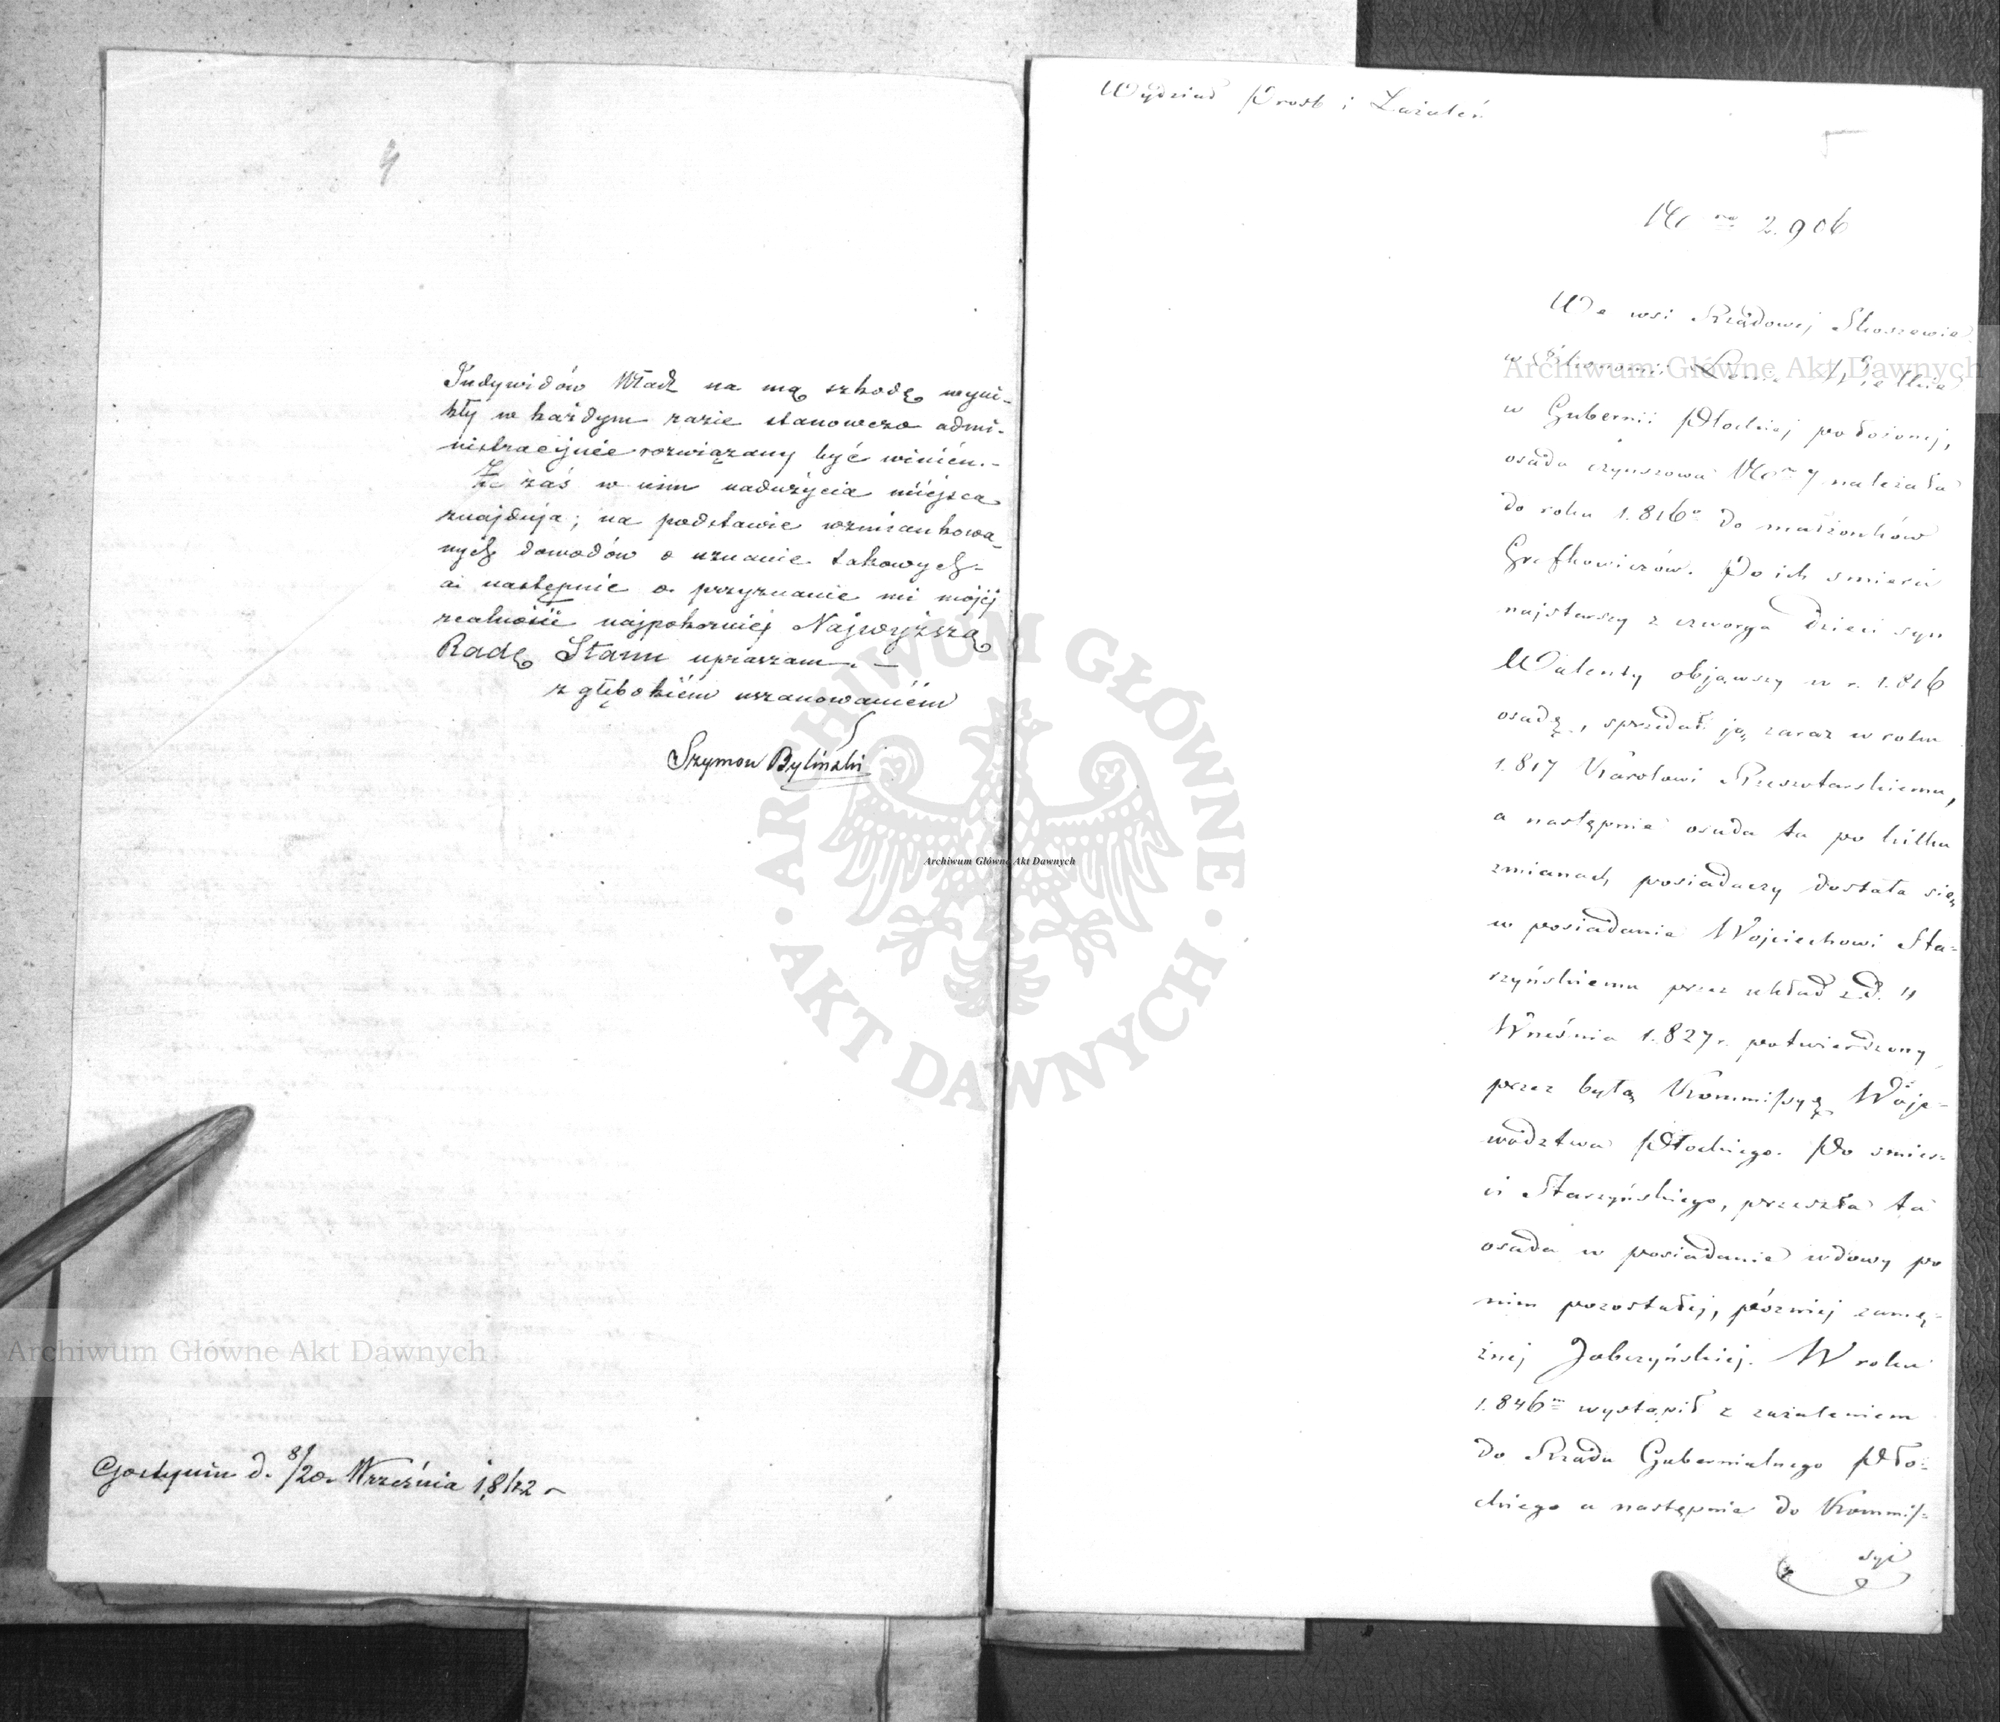 4
Indywidów Władz na mą szkodę wyni-
kły w każdym razie stanowczo admi-
nistracyjnie rozwiązany być winien.-
Że zaś w nim nadużycia miejsca
znajdują; na podstawie wzmiankowa-
nych dowodów o uznanie takowych-
a następnie o przyznanie mi mojej
realności najpokorniej Najwyższą
Radę Stanu upraszam.—
z głębokiém uszanowaniém
Szymon Byliński
Gostynin d. 8/20 Września 1862 r
Wydział Prośb i Zażaleń
5
No 2.906
We wsi Rządowej
w Ekonomii
w Gubernii Płockiej położonej,
osada czynszowa No 7 należała
do roku 1.816 do małżonków
Grefkowiczów. Po ich śmierci
najstarszy z czworga dzieci syn
Walenty objąwszy w r. 1.816
osadę, sprzedał ją zaraz w roku
1.817 Karolowi Rzeszotarskiemu,
a następnie osada ta po kilku
zmianach posiadaczy dostała się
w posiadanie Wojciechowi Sta-
rzyńskiemu przez układ z d. 11
Września 1.827 r. potwierdzony
przez byłą Kommissyę Woje-
wództwa Płockiego. Po śmier-
ci Starzyńskiego, przeszła ta
osada w posiadanie wdowy po
nim pozostałej, później zamę-
żnej Jabczyńskiej. W roku
1.846m wystąpił z zażaleniem
do Rządu Gubernialnego Pło-
ckiego a następnie do Kommis-
syi
Archiwum Główne Akt Dawnych
Archiwum Główne Akt Dawnych
Archiwum Główne Akt Dawnych
ARCHIWUM GŁÓWNE
AKT DAWNYCH